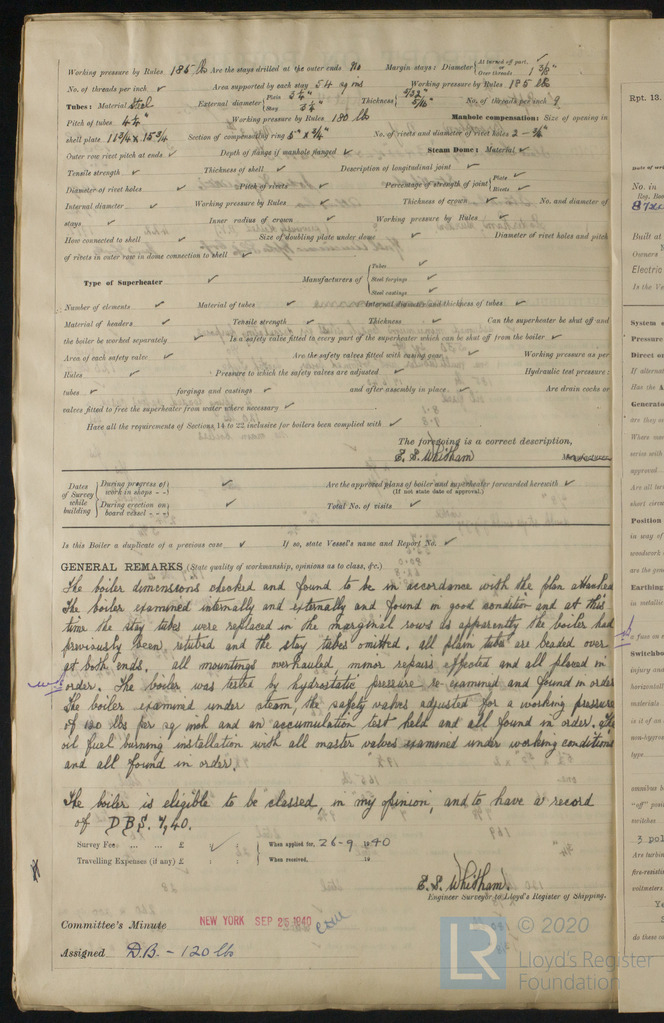 Working pressure by Rules 185 lb Are the stays drilled at the outer ends No Margin stays: Diameter { At turned off part, ✓ Over threads 1 3/8"
No. of threads per inch ✓ Area supported by each stay 54 sq ins Working pressure by Rules 185 lbs
Tubes: Material Steel External diameter { Plain 3 1/4" Stay 3 1/4" Thickness { 5/32" 5/16" No. of threads per inch 9
Pitch of tubes 4 1/2" Working pressure by Rules 180 lbs Manhole compensation: Size of opening in
shell plate 11 3/4 x 15 3/4 Section of compensating ring 5" x 3/4" No. of rivets and diameter of rivet holes 2 - 3/4"
Outer row rivet pitch at ends ✓ Depth of flange if manhole flanged ✓ Steam Dome: Material ✓
Tensile strength ✓ Thickness of shell ✓ Description of longitudinal joint ✓
Diameter of rivet holes ✓ Pitch of rivets ✓ Percentage of strength of joint { Plate ✓ Rivets ✓
Internal diameter ✓ Working pressure by Rules ✓ Thickness of crown ✓ No. and diameter of
stays ✓ Inner radius of crown ✓ Working pressure by Rules ✓
How connected to shell ✓ Size of doubling plate under dome ✓ Diameter of rivet holes and pitch
of rivets in outer row in dome connection to shell ✓
Type of Superheater ✓ Manufacturers of { Tubes ✓ Steel forgings ✓ Steel castings ✓
Number of elements ✓ Material of tubes ✓ Internal diameter and thickness of tubes ✓
Material of headers ✓ Tensile strength ✓ Thickness ✓ Can the superheater be shut off and
the boiler be worked separately ✓ Is a safety valve fitted to every part of the superheater which can be shut off from the boiler ✓
Area of each safety valve ✓ Are the safety valves fitted with easing gear ✓ Working pressure as per
Rules ✓ Pressure to which the safety valves are adjusted ✓ Hydraulic test pressure:
tubes ✓ forgings and castings ✓ and after assembly in place ✓ Are drain cocks or
valves fitted to free the superheater from water where necessary ✓
Have all the requirements of Sections 14 to 22 inclusive for boilers been complied with ✓
The foregoing is a correct description,
E. S. Whitham Manufacturer
Dates of Survey while building { During progress of work in shops - - ✓ Are the approved plans of boiler and superheater forwarded herewith ✓ (If not state date of approval.)
During erection on board vessel - - - ✓ Total No. of visits ✓
Is this Boiler a duplicate of a previous case ✓ If so, state Vessel's name and Report No. ✓
GENERAL REMARKS (State quality of workmanship, opinions as to class, &c.)
The boiler dimensions checked and found to be in accordance with the plan attached
The boiler examined internally and externally and found in good condition and at this
time the stay tubes were replaced in the marginal rows as apparently the boiler had
previously been retubed and the stay tubes omitted. all plain tubes are beaded over
at both ends. all mountings overhauled, minor repairs effected and all placed in
order. The boiler was tested by hydrostatic pressure re-examined and found in order
The boiler examined under steam, the safety valves adjusted for a working pressure
of 120 lbs per sq inch and an accumulation test held and all found in order. The
oil fuel burning installation with all master valves examined under working conditions
and all found in order.
The boiler is eligible to be classed, in my opinion, and to have a record
of DBS. 7,40.
Survey Fee ... ... £ ✓ When applied for, 26-9 1940
Travelling Expenses (if any) £ When received, 19
E. S. Whitham.
Engineer Surveyor to Lloyd's Register of Shipping.
Committee's Minute NEW YORK SEP 25 1940
Assigned D.B. - 120 lb
© 2020
LR
Lloyd's Register
Foundation
Rpt. 13.
No. in
Reg. Book
Built at
Owners
Electric
Is the Ve
System
Pressure
Direct or
If alternat
Has the A
Generato
are they o
Where
approved
Are all
short circu
Position
in way of
woodwork
are the
Earthing
Switchbo
injury and
horizontal
materials
is it of an
type
omnibus b
"off" posi
switches
3 pol
Are turbin
fire-resistin
voltmeters,
Ye
do these